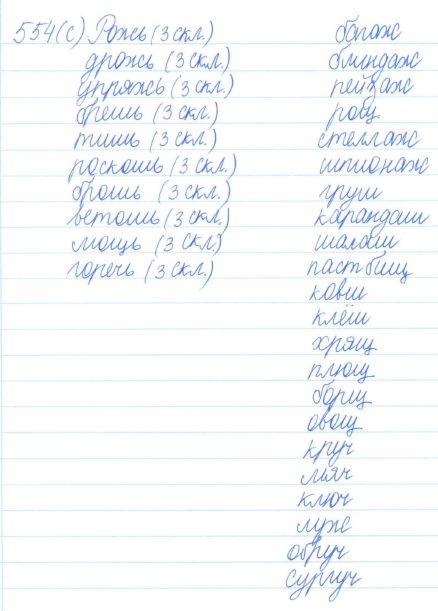 554(с) Рожь (3 скл.)
дрожь (3 скл.)
упряжь (3 скл.)
брешь (3 скл.)
тишь (3 скл.)
роскошь (3 скл.)
брошь (3 скл.)
ветошь (3 скл.)
мощь (3 скл.)
горечь (3 скл.)
багаж
блиндаж
пейзаж
рощ
стеллаж
шпионаж
груш
карандаш
шалаш
пастбищ
ковш
клёш
хрящ
плющ
борщ
овощ
круч
мяч
ключ
луж
обруч
сургуч